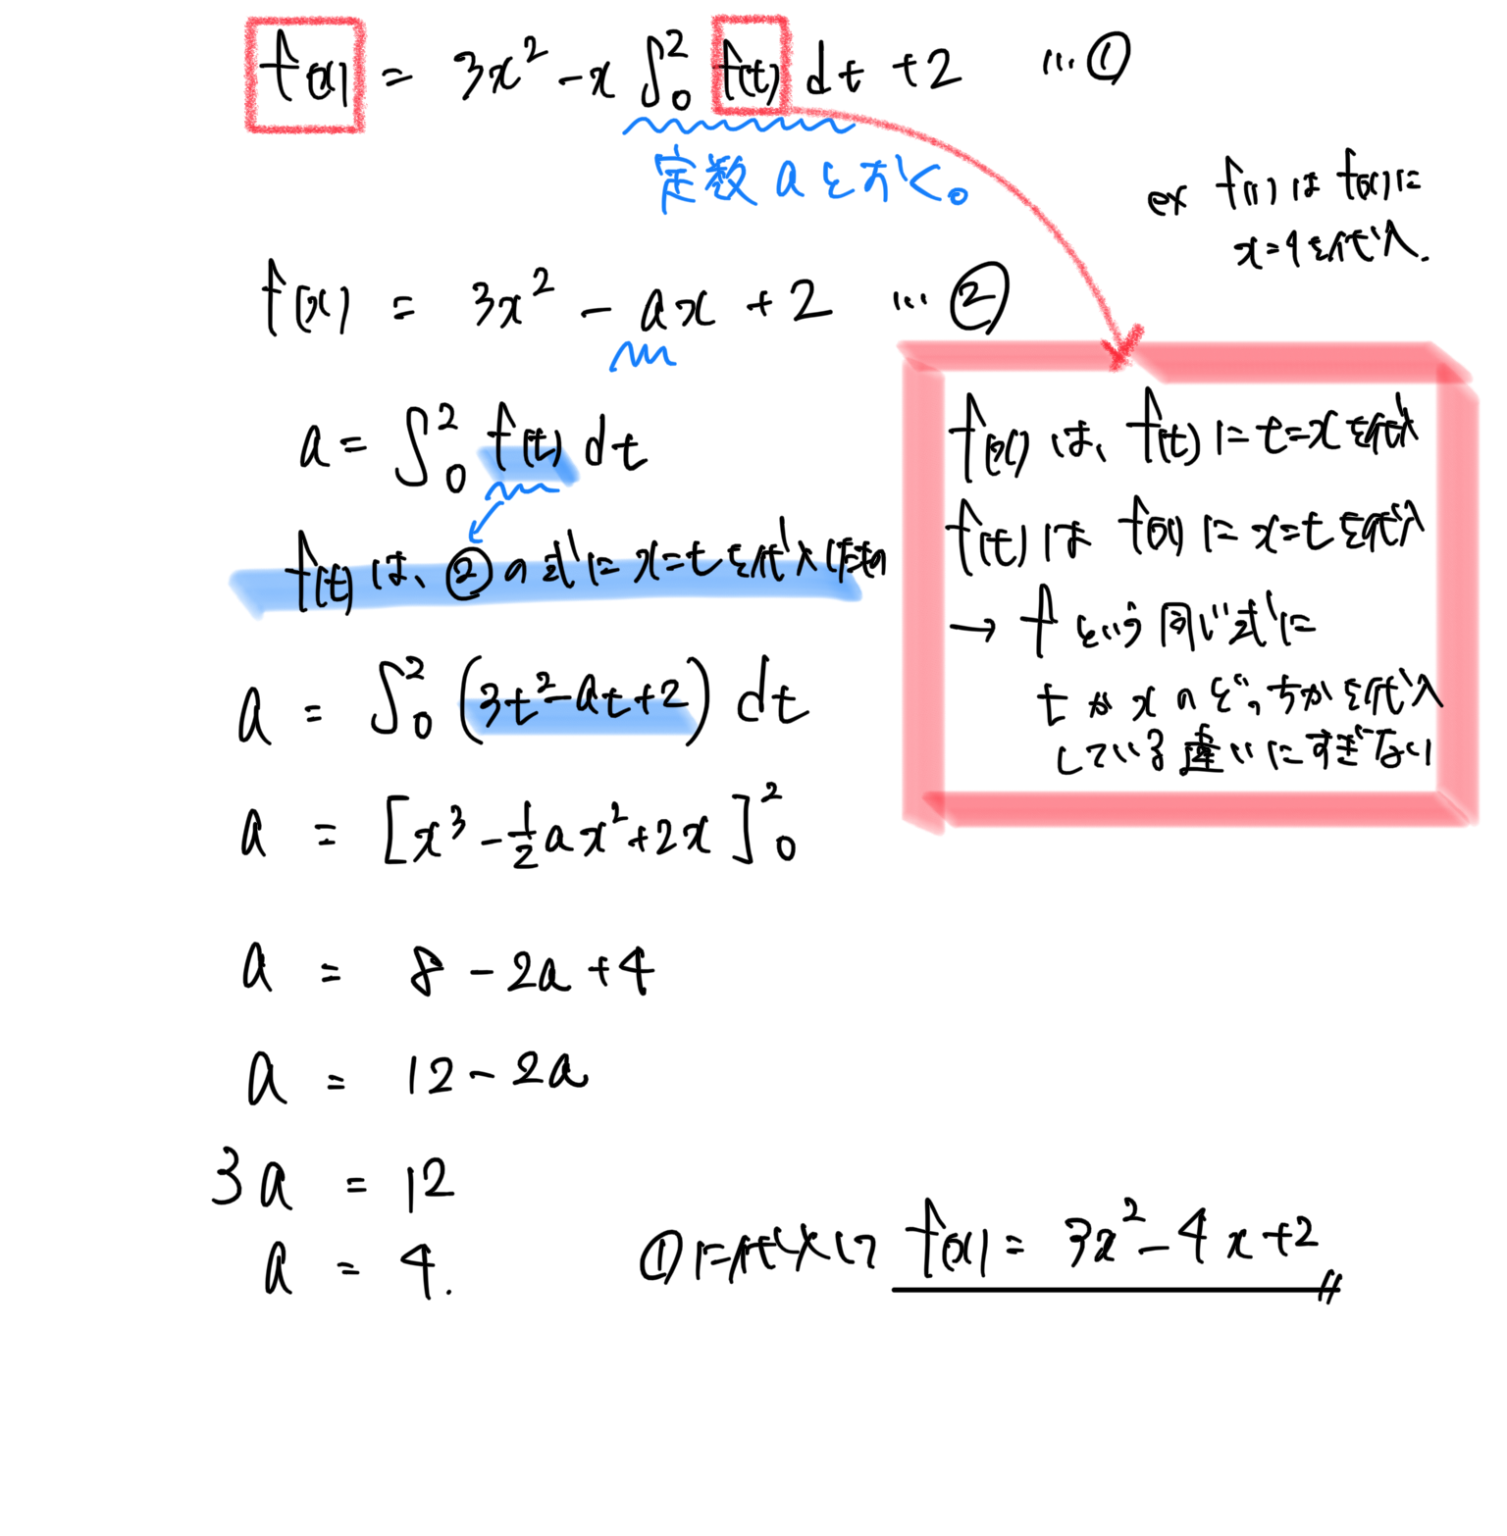 f(x) = 3x² - x ∫₀² f(t) dt + 2 … ①
定数 a とおく。
ex f(1) は f(x) に
x=1を代入.
f(x) = 3x² - ax + 2 … ②
a = ∫₀² f(t) dt
f(t) は、②の式に x=t を代入したもの
a = ∫₀² (3t² - at + 2) dt
a = [x³ - 1/2 ax² + 2x]₀²
a = 8 - 2a + 4
a = 12 - 2a
3a = 12
a = 4.
①に代入して f(x) = 3x² - 4x + 2
f(x) は、f(t) に t=x を代入
f(t) は f(x) に x=t を代入
→ f という同じ式に
t か x のどっちかを代入
している違いにすぎない